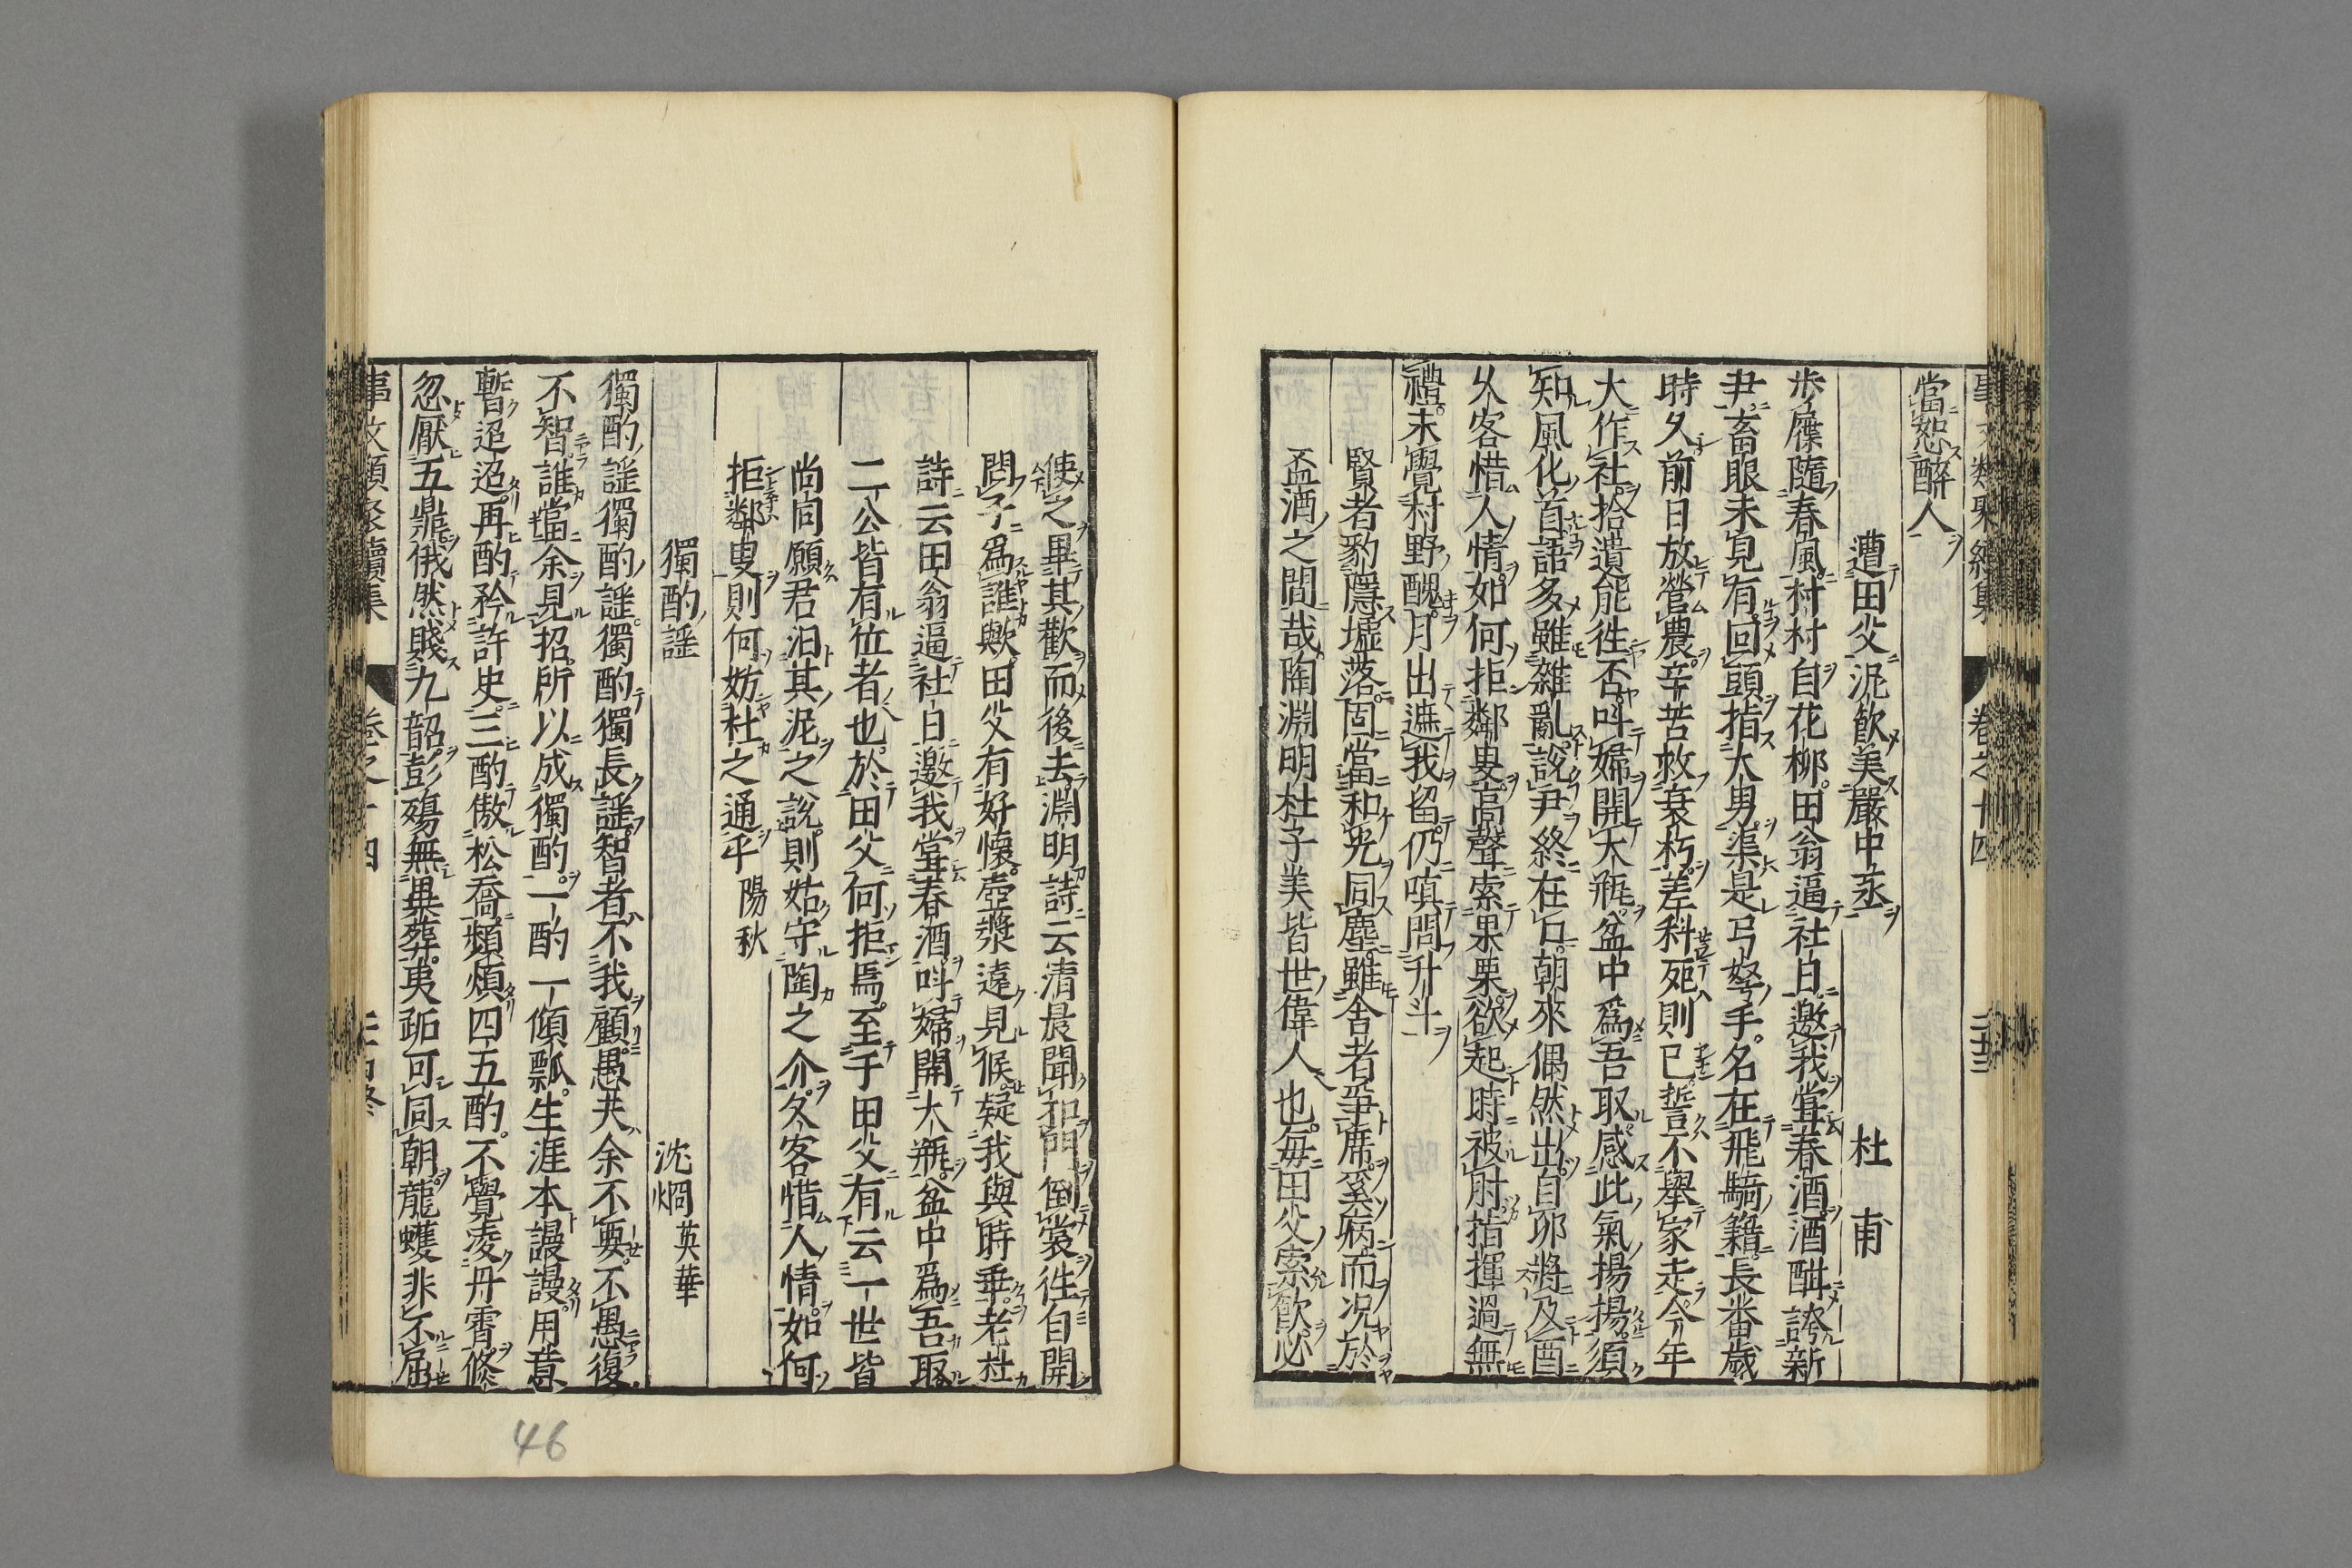 當恕醉人
遭田父泥飲美嚴中丞 杜甫
步屧隨春風村村自花柳田翁逼社日邀我甞春酒酒酣誇新
尹畜眼未見有回頭指大男渠是弓弩手名在飛騎籍長畨歲
時久前日放營農辛苦救衰朽差科死則已誓不舉家走今年
大作社拾遺能徃否呌婦開大瓶盆中爲吾取感此氣揚揚須
知風化首語多雖雜亂說尹終在口朝來偶然出自卯將及酉
久客惜人情如何拒鄰叟高聲索果栗欲起時被肘指揮過無
禮未覺村野醜月出遮我留仍嗔問升斗
賢者豹隱墟落固當和光同塵雖舍者爭席奚病而况於
盃酒之間哉陶淵明杜子美皆世偉人也毎田父索飲必
使之畢其歡而後去淵明詩云清晨聞扣門倒裳徃自開
問子爲誰歟田父有好懷壺漿遠見候疑我與時乖老杜
詩云田翁逼社日邀我甞春酒呌婦開大瓶盆中爲吾取
二公皆有位者也於田父何拒焉至于田父有云一世皆
尚同願君汨其泥之說則姑守陶之介久客惜人情如何
拒鄰叟則何妨杜之通乎 陽秋
獨酌謡 沈烱 英華
獨酌謡獨酌謡獨酌獨長謡智者不我顧愚夫余不要不愚復
不智誰當余見招所以成獨酌一酌一傾瓢生涯本謾謾用意
暫迢迢再酌矜許史三酌傲松喬頻煩四五酌不覺凌丹霄倐
忽厭五鼎俄然賤九韶彭殤無異葬夷跖可同朝龍蠖非不屈
事文類聚續集 卷之十四
46